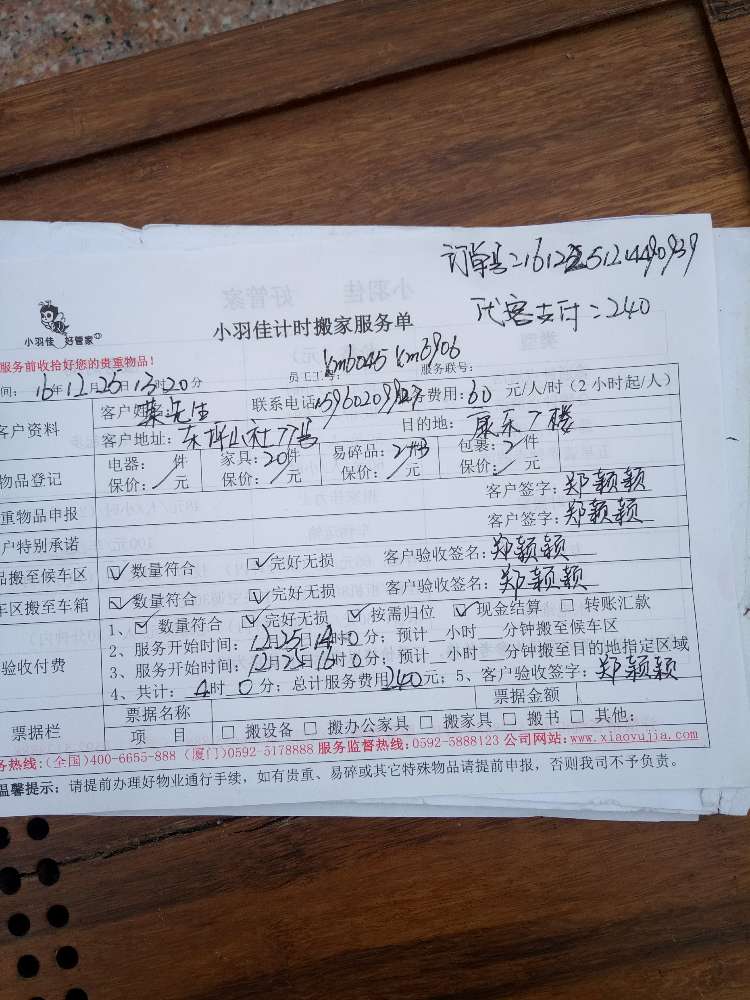 代客支付:240
小羽佳 好管家
小羽佳计时搬家服务单
服务前收拾好您的贵重物品!
员工工号: 服务联号:
间: 16年12月25日13时20分
客户资料
客户姓名: 先生 联系电话: 费用:60 元/人/时(2 小时起/人)
客户地址: 目的地: 康乐7楼
物品登记
电器: 件 家具:20件 易碎品:2件 包裹:2件
保价: / 元 保价: / 元 保价: / 元 保价: / 元
重物品申报 客户签字:郑颖颖
户特别承诺 客户签字:郑颖颖
品搬至候车区 ☑ 数量符合 ☑ 完好无损 客户验收签名:郑颖颖
车区搬至车箱 ☑ 数量符合 ☑ 完好无损 客户验收签名:郑颖颖
验收付费
1、☑ 数量符合 ☑ 完好无损 ☑ 按需归位 ☑ 现金结算 □ 转账汇款
2、服务开始时间:12月25日14时0分;预计 小时 分钟搬至候车区
3、服务开始时间:12月25日16时0分;预计 小时 分钟搬至目的地指定区域
4、共计: 4时 0分;总计服务费用240元;5、客户验收签字:郑颖颖
票据栏
票据名称 票据金额
项 目 □ 搬设备 □ 搬办公家具 □ 搬家具 □ 搬书 □ 其他:
务热线:(全国)400-6655-888 (厦门)0592-5178888 服务监督热线:0592-5888123 公司网站:www.xiaoyujia.com
温馨提示:请提前办理好物业通行手续,如有贵重、易碎或其它特殊物品请提前申报,否则我司不予负责。